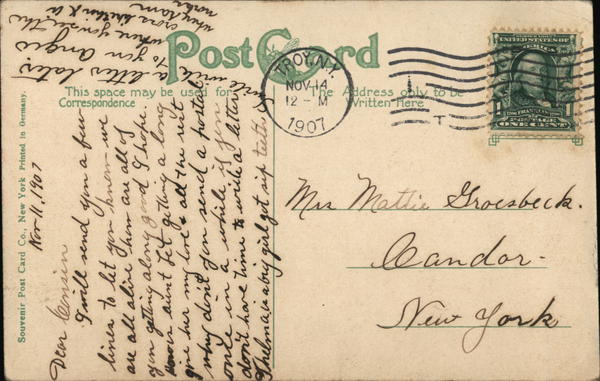 Post Card
This space may be used for
Correspondence
The Address only to be
Written Here
TROY, N.Y.
NOV 14
12 - M
1907
UNITED STATES OF
AMERICA
ONE CENT
Souvenir Post Card Co., New York Printed in Germany.
Nov 11, 1907
Dear Cousin
I will send you a few
lines to let you know we
are all alive how are all of
you getting along good I hope.
aunt Let getting along
give her my love & all the rest
why don't you send a postal
once in a while if you
don't have time to write a letter
Thelma is a big girl got six teeth
I will write a letter later
to you Angie
when you
cross
Mrs Mattie Groesbeck.
Candor -
New York